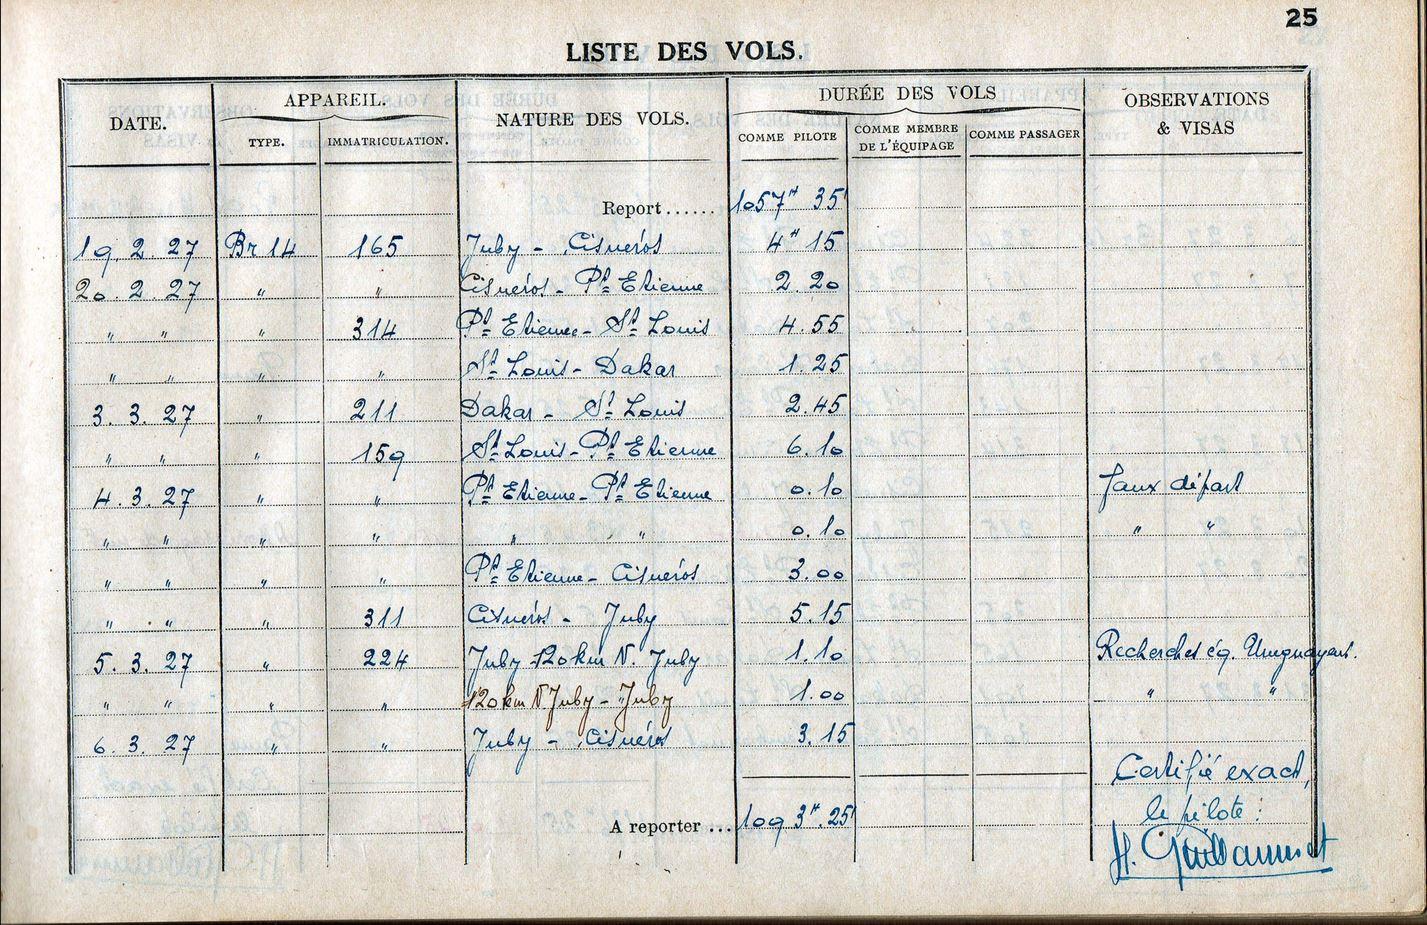 25
LISTE DES VOLS.
DATE. APPAREIL. NATURE DES VOLS. DURÉE DES VOLS OBSERVATIONS & VISAS
TYPE. IMMATRICULATION. COMME PILOTE COMME MEMBRE DE L'ÉQUIPAGE COMME PASSAGER
Report...... 1057H 35'
19. 2. 27 Br 14 165 Juby - Cisnéros 4H 15
20. 2. 27 " " Cisnéros - Pt Etienne 2 20
" " " 314 Pt Etienne - St Louis 4.55
" " " " St Louis - Dakar 1.25
3. 3. 27 " 211 Dakar - St Louis 2.45
" " " 159 St Louis - Pt Etienne 6.10
4. 3. 27 " " Pt Etienne - Pt Etienne 0.10 faux départ
" " " " " " 0.10 " "
" " " " Pt Etienne - Cisnéros 3.00
" " " 311 Cisnéros - Juby 5.15
5. 3. 27 " 224 Juby 120 km N. Juby 1.10 Recherches éq. Uruguayan.
" " " " 120 km N Juby - Juby 1.00 " "
6. 3. 27 " " Juby - Cisnéros 3.15
Certifié exact,
le pilote :
A reporter ... 1093H.25'
H. Guillaumet